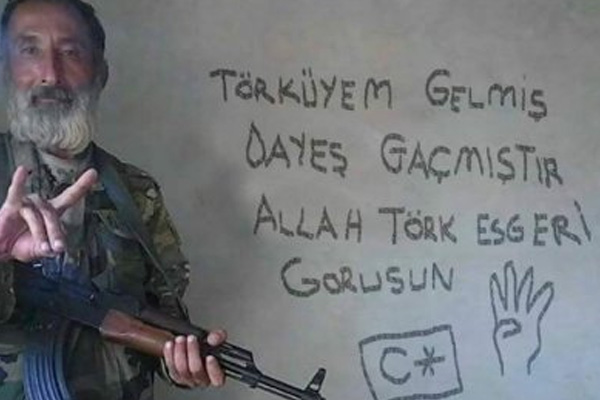 TÖRKÜYEM GELMİŞ
DAYEŞ GAÇMIŞTIR
ALLAH TÖRK ESGERİ
GORUSUN
C*